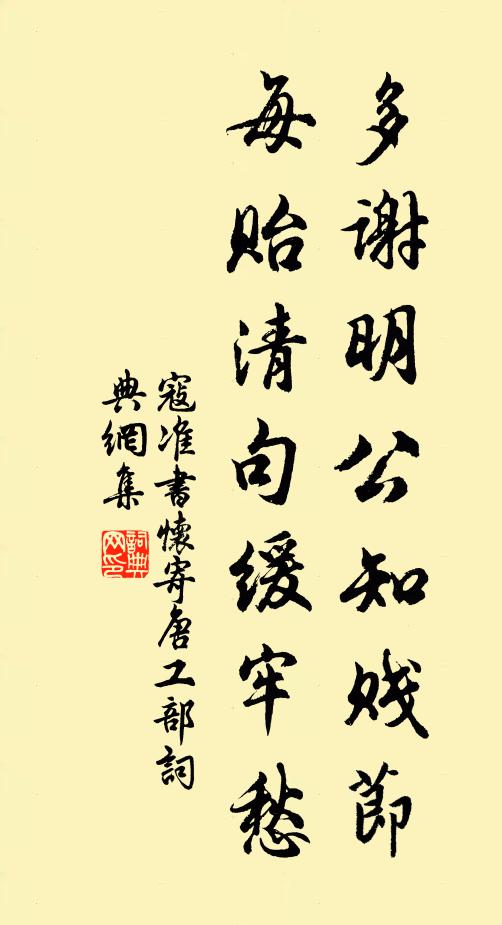 多謝明公知賤節
每貽清句緩牢愁
寇准書懷寄唐工部詞
典網集
詞典
网印